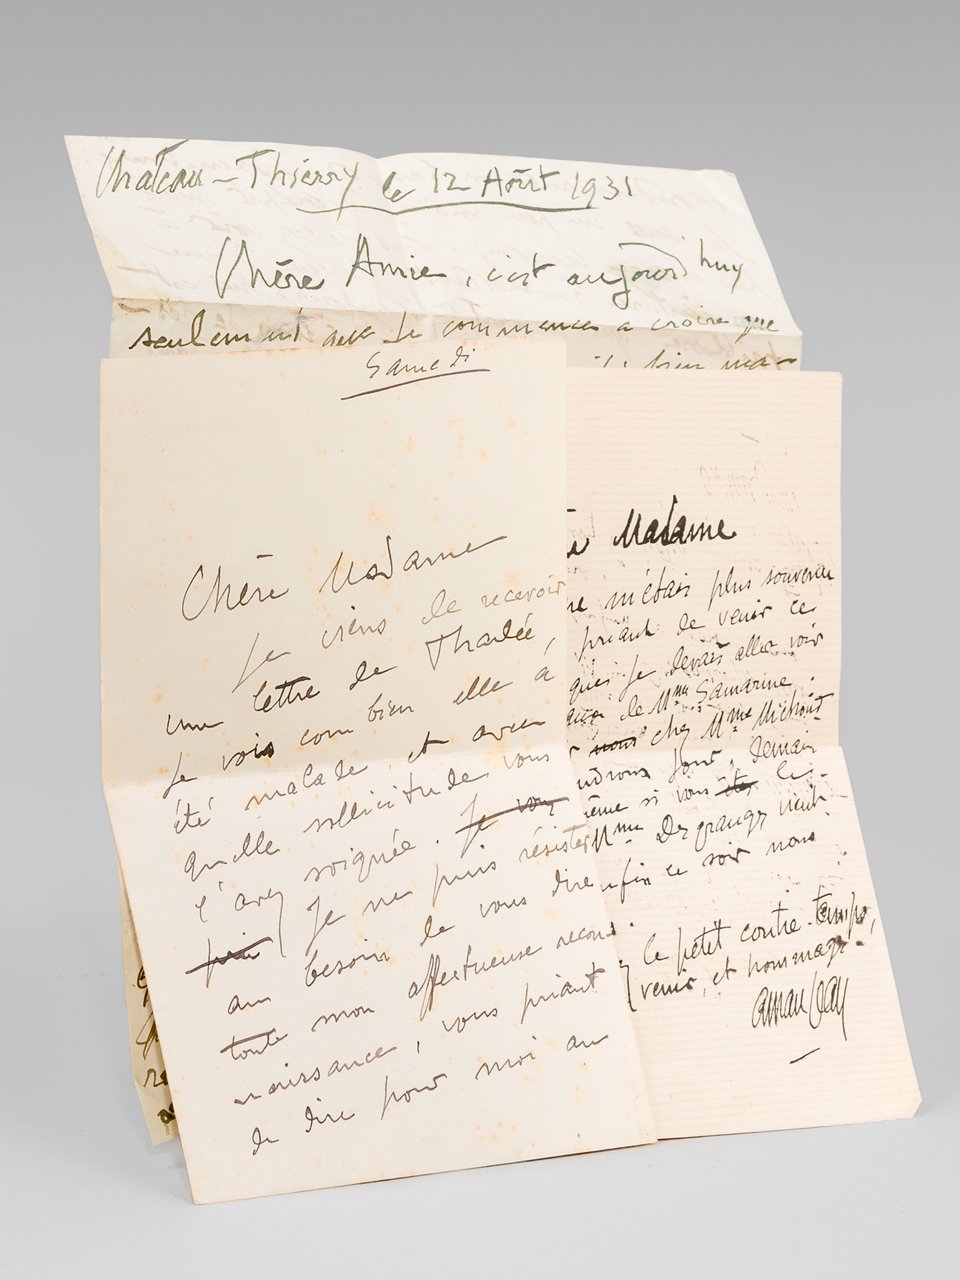 Chateau-Thierry le 12 Août 1931
Chère Amie, c'est aujourd'huy
seulement que je commence a croire que
bien ma-
Samedi
Chère Madame
Je viens de recevoir
une lettre de Thadée,
Je vois com bien elle à
été malade, et avec
quelle sollicitude vous
l'avez soignée. Je vous
Je ne puis résister
au besoin de vous dire
toute mon affectueuse recon-
naissance, vous priant
de dire pour moi au
Madame
ne m'étais plus souvenu
priant de venir ce
que je devais aller voir
de Mme Samarine.
nous chez Mme Michaut
jour, demain
même si vous êtes li-
Mme Desgranges vient
enfin ce soir nous
le petit contre-temps,
venir, et hommages.
aman Jean